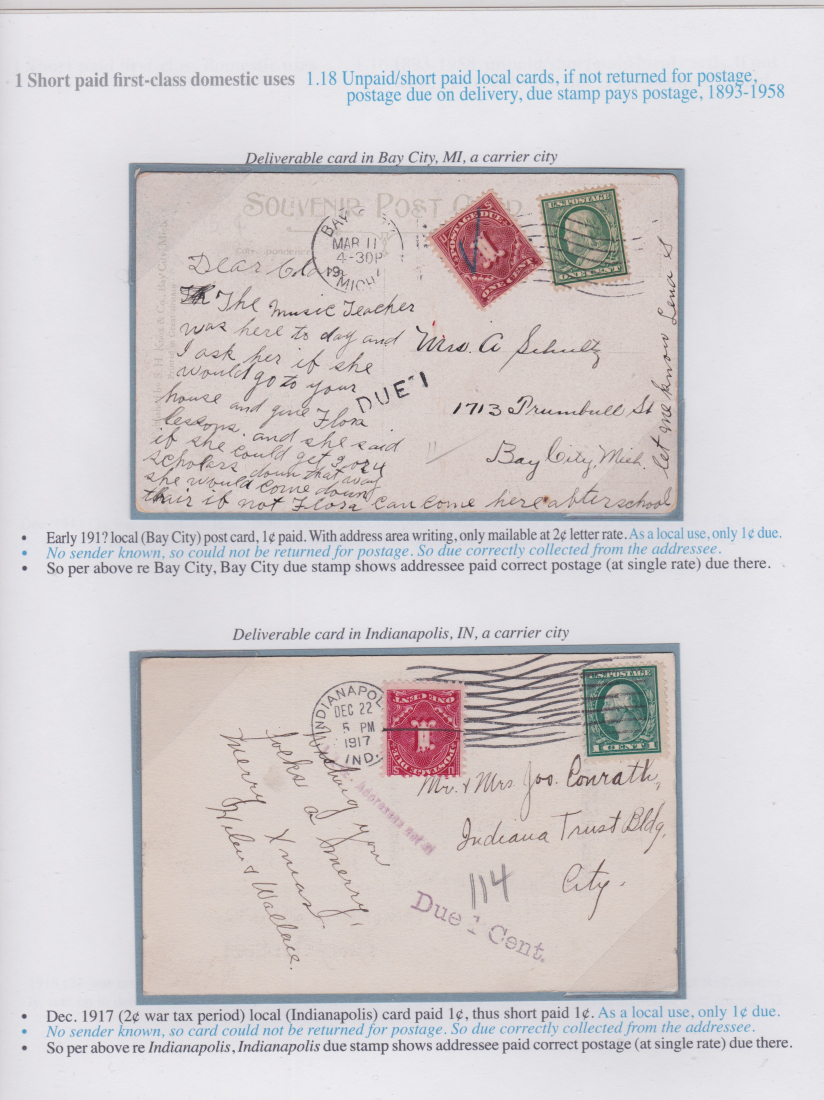 1 Short paid first-class domestic uses 1.18 Unpaid/short paid local cards, if not returned for postage,
postage due on delivery, due stamp pays postage, 1893-1958
Deliverable card in Bay City, MI, a carrier city
SOUVENIR POST CARD
BAY
MAR 11
4-30P
19
MICH
POSTAGE DUE
ONE CENT
U.S. POSTAGE
ONE CENT
Dear
The Music Teacher
was here to day and
I ask her if she
would go to your
house and give Flora
lessons. and she said
if she could get 2 or 4
scholars down that away
she would come down
thair if not Flora can come here after school
let me know Lena S
DUE 1
Mrs. A Schultz
1713 Prumbull St
Bay City, Mich.
• Early 191? local (Bay City) post card, 1¢ paid. With address area writing, only mailable at 2¢ letter rate. As a local use, only 1¢ due.
• No sender known, so could not be returned for postage. So due correctly collected from the addressee.
• So per above re Bay City, Bay City due stamp shows addressee paid correct postage (at single rate) due there.
Deliverable card in Indianapolis, IN, a carrier city
INDIANAPOL
DEC 22
5 PM
1917
IND.
ONE CENT
POSTAGE DUE
U.S. POSTAGE
1 CENT 1
Wishing you
folks a merry,
merry Xmas.
Helen & Wallace.
Addressee not at
Mr. & Mrs. Joo. Conrath,
Indiana Trust Bldg.
City.
114
Due 1 Cent.
• Dec. 1917 (2¢ war tax period) local (Indianapolis) card paid 1¢, thus short paid 1¢. As a local use, only 1¢ due.
• No sender known, so card could not be returned for postage. So due correctly collected from the addressee.
• So per above re Indianapolis, Indianapolis due stamp shows addressee paid correct postage (at single rate) due there.